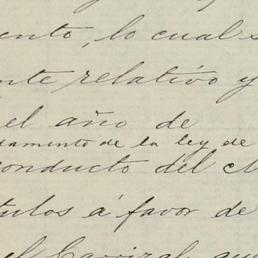 ento, lo cual s
nte relativo y
el año de
damento de la ley de
conducto del M
tulos á favor de
el Carrizal, que